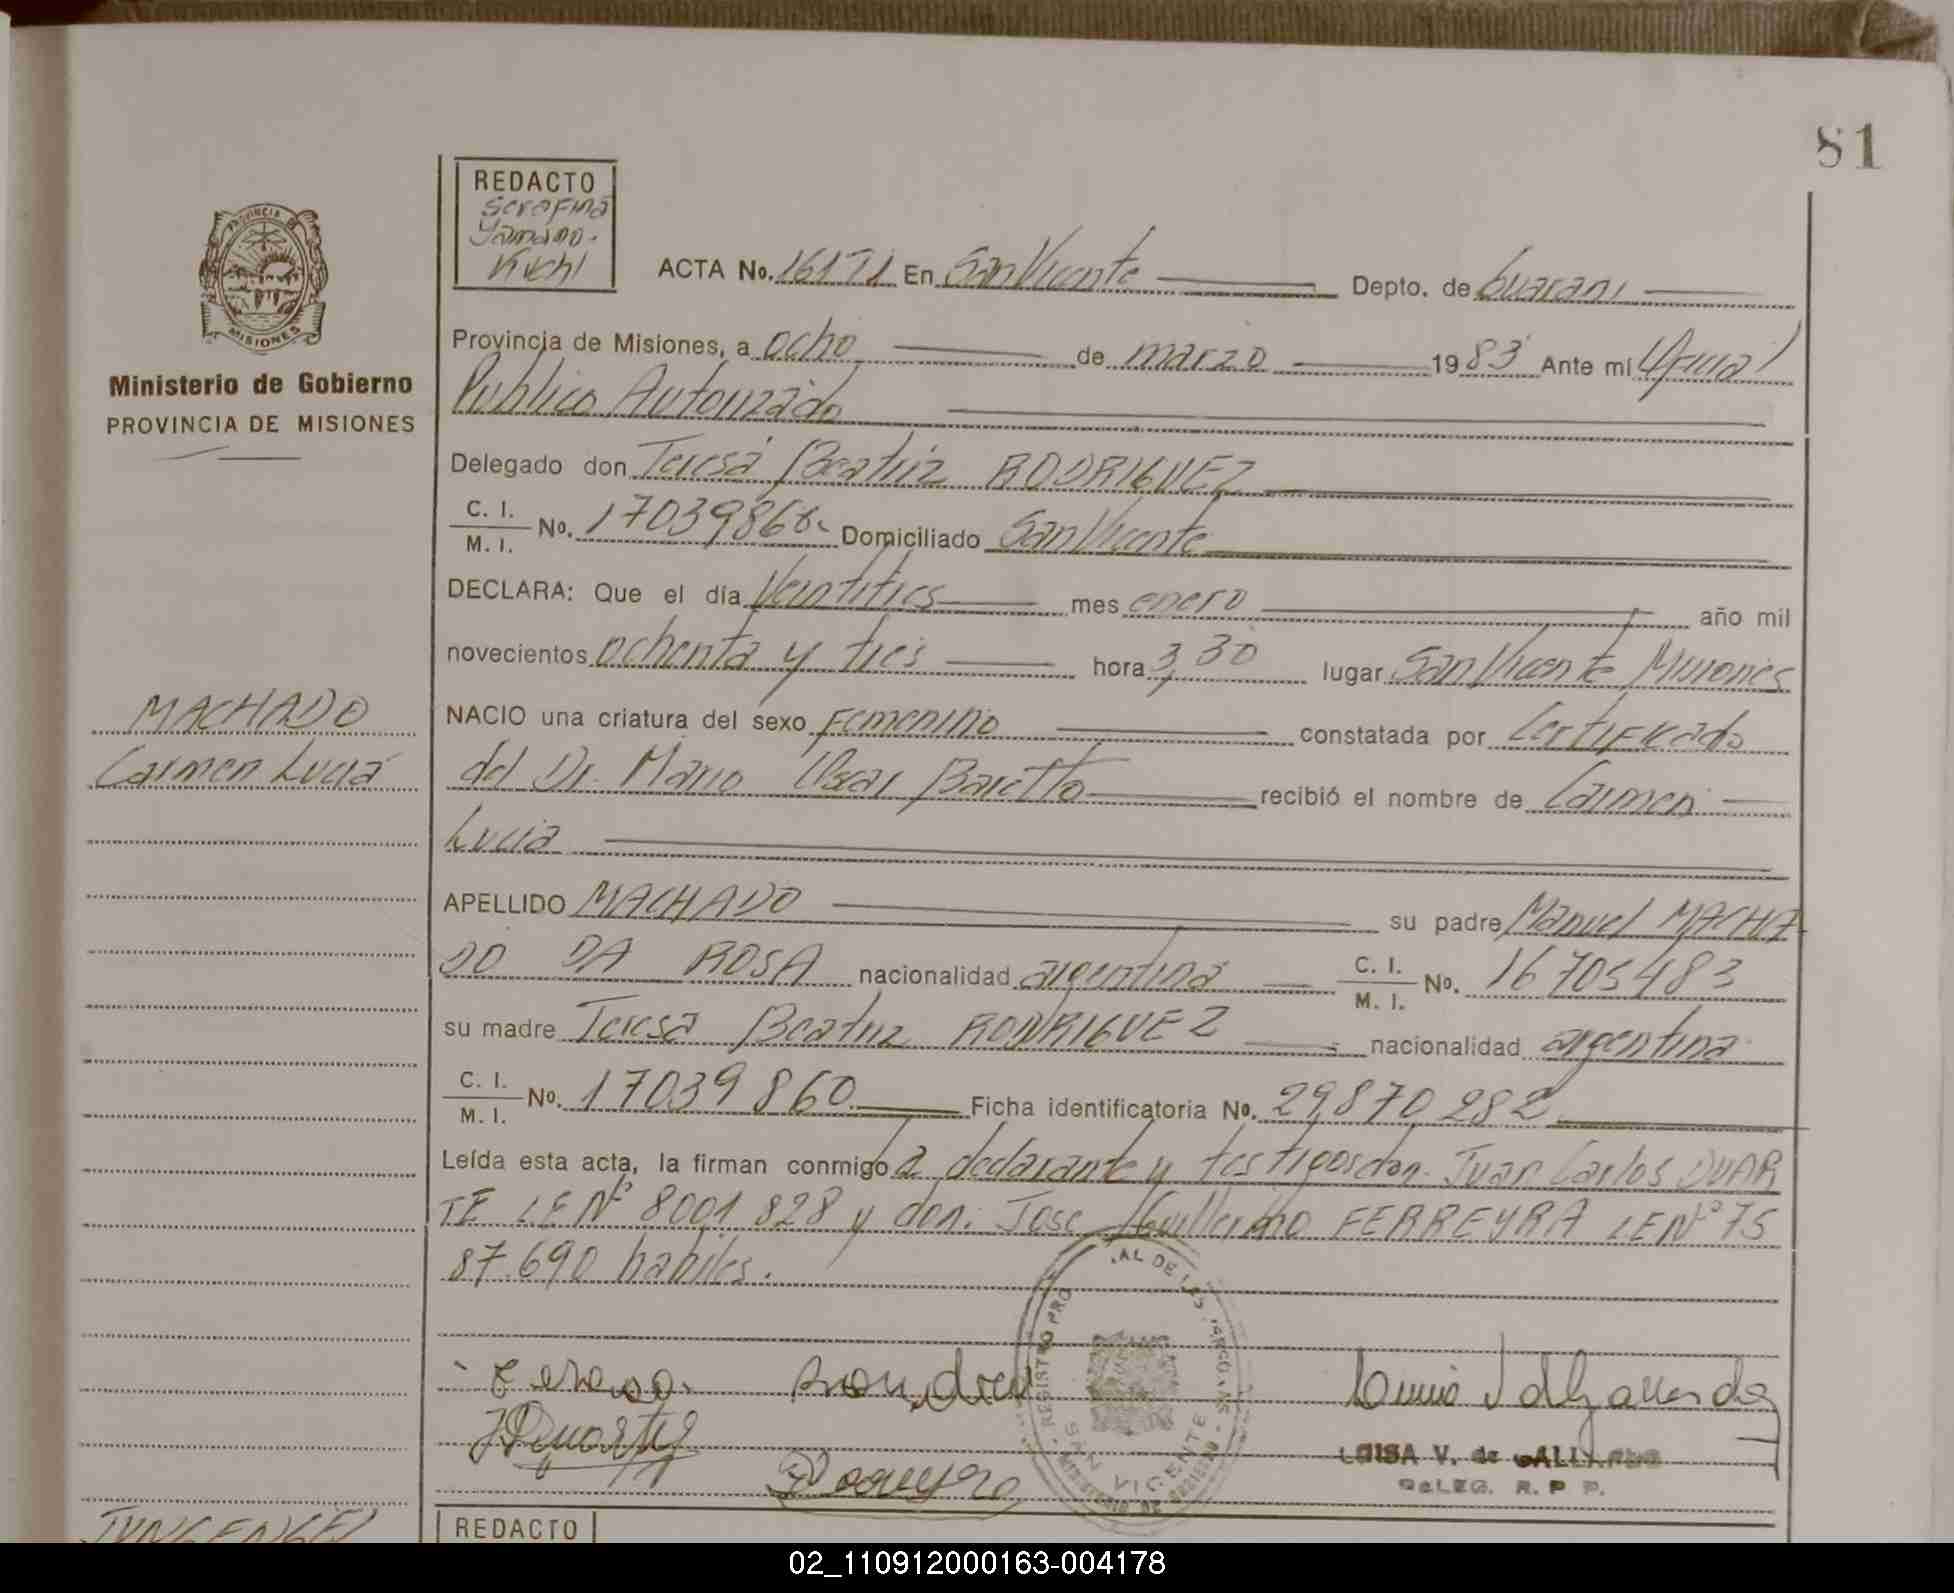 81
REDACTO
Serafina
Yamano-
Kuchi
PROVINCIA DE
MISIONES
Ministerio de Gobierno
PROVINCIA DE MISIONES
ACTA No. 16171 En San Vicente Depto. de Guarani
Provincia de Misiones, a ocho de marzo 1983 Ante mi Oficial
Publico Autorizado
Delegado don Teresa Beatriz RODRIGUEZ
C. I.
M. I. No. 17039860. Domiciliado San Vicente
DECLARA: Que el día Veintitres mes enero año mil
novecientos ochenta y tres hora 3,30 lugar San Vicente Misiones
MACHADO
NACIO una criatura del sexo Femenino constatada por Certificado
Carmen Lucia
del Dr. Mario Oscar Baretto recibió el nombre de Carmen
Lucia
APELLIDO MACHADO su padre Manuel MACHA
DO DA ROSA nacionalidad argentina C. I. M. I. No. 16705483
su madre Teresa Beatriz RODRIGUEZ nacionalidad argentina
C. I.
M. I. No. 17039860 Ficha identificatoria No. 29.870.282
Leída esta acta, la firman conmigo la declarante y testigos don. Juan Carlos DUAR
TE LE Nº 8001828 y don. Jose Guillermo FERREYRA LE Nº 75
87.690 habiles.
SAN VICENTE
LUISA V. de GALLARDO
DELEG. R. P. P.
REDACTO
02_110912000163-004178